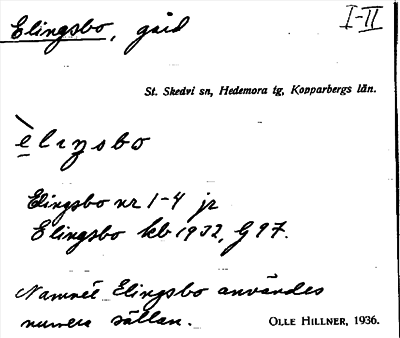 Elingsbo, gård I-II
St. Skedvi sn, Hedemora tg, Kopparbergs län.
èlıŋsbo
Elingsbo nr 1-4 jr
Elingsbo kb 1932, G 97.
Namnet Elingsbo användes
numera sällan.
OLLE HILLNER, 1936.